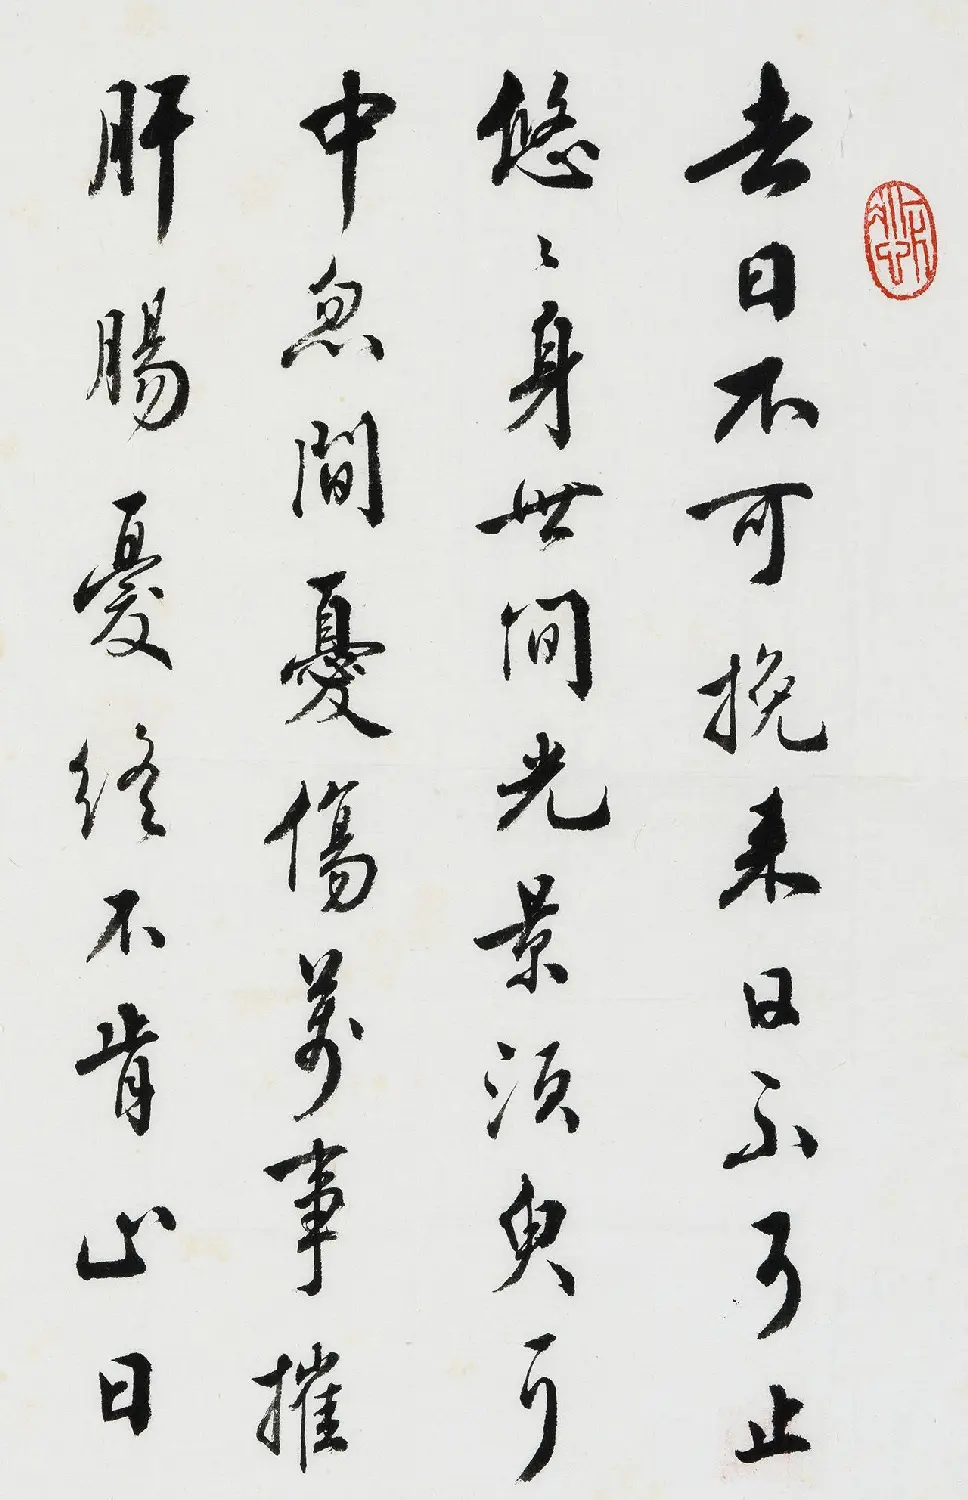 去日不可挽来日不可止
悠〻身世間光景須臾耳
中忽間憂傷萬事摧
肝腸憂終不肯止日